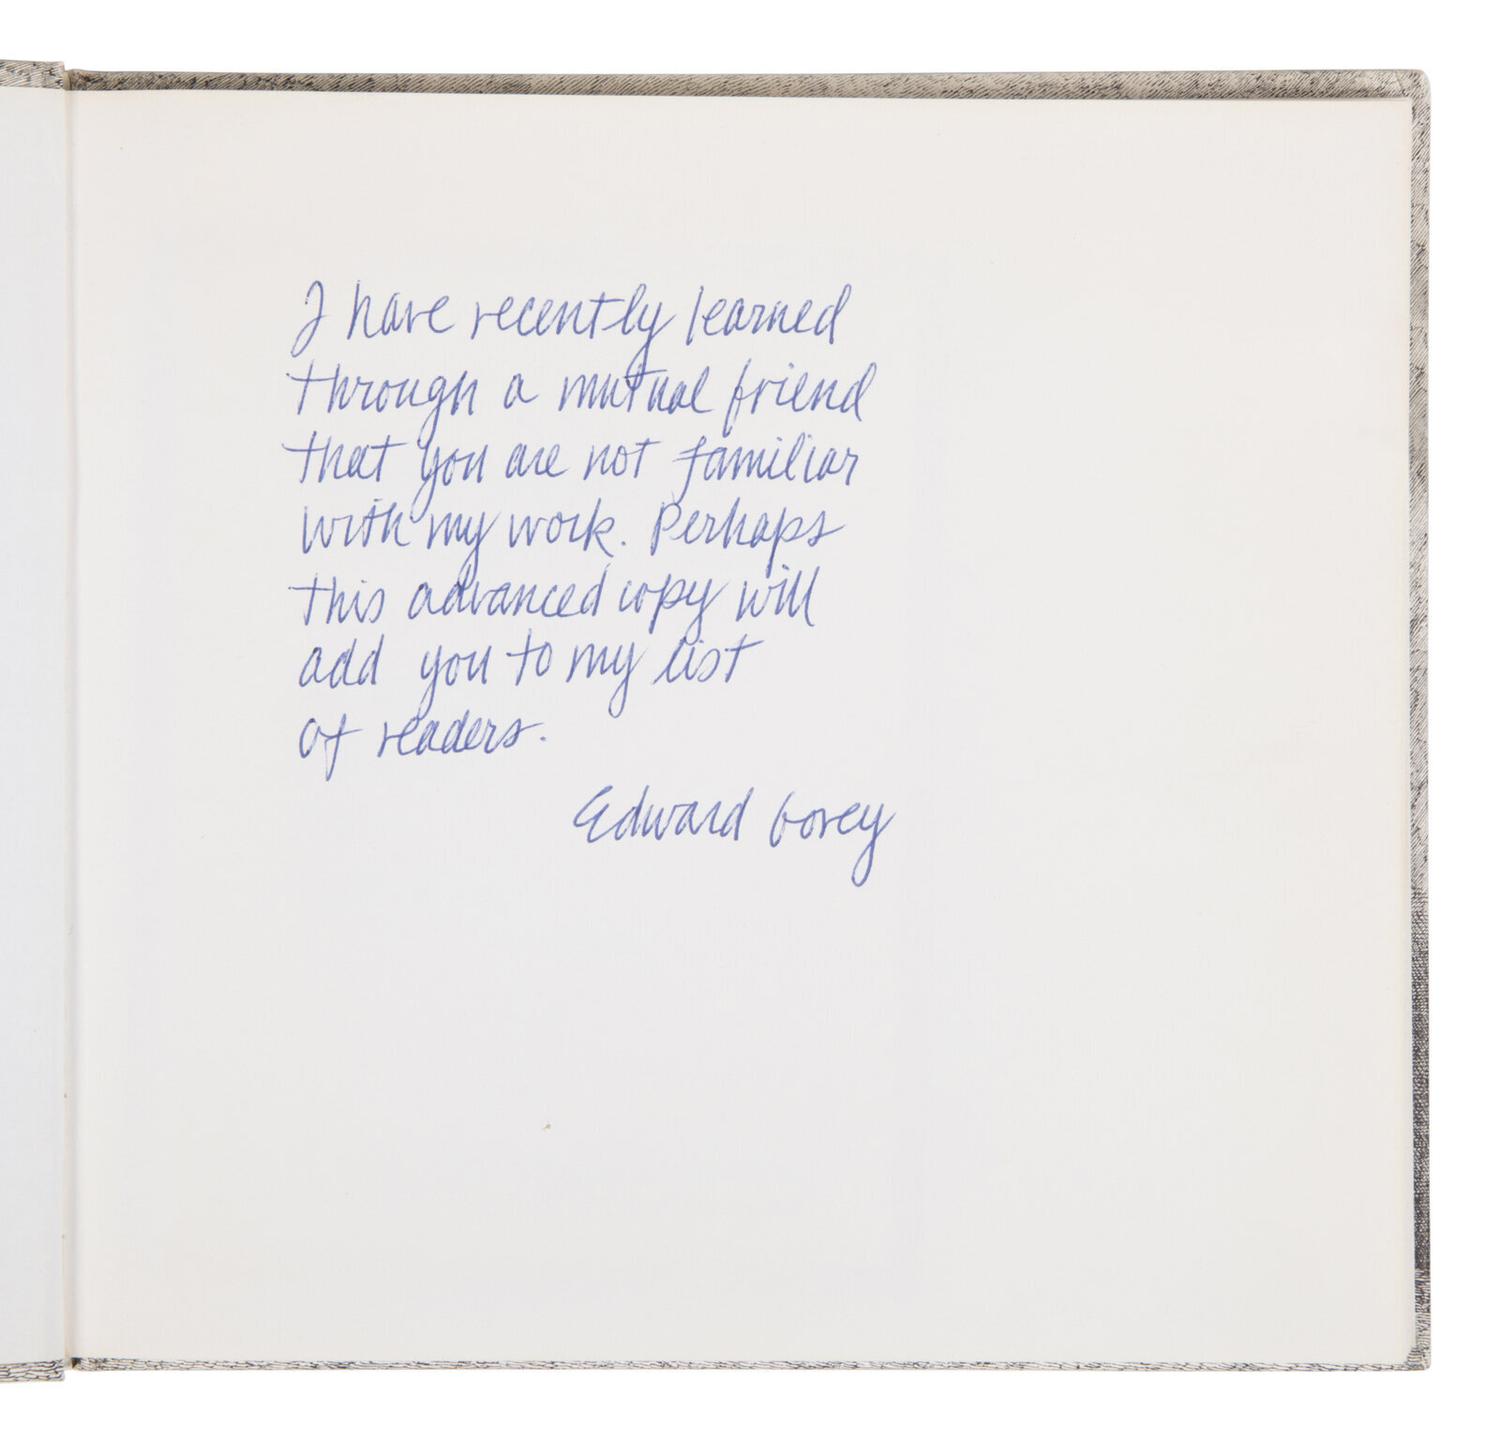 I have recently learned
through a mutual friend
that you are not familiar
with my work. Perhaps
this advanced copy will
add you to my list
of readers.
Edward Gorey